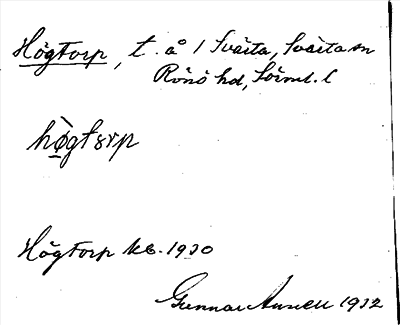 Högtorp, t. å 1 Svärta, Svärta sn
Rönö hd, Sörml. l
hø̀gtɷrp
Högtorp kb. 1930
Gunnar Annell 1932